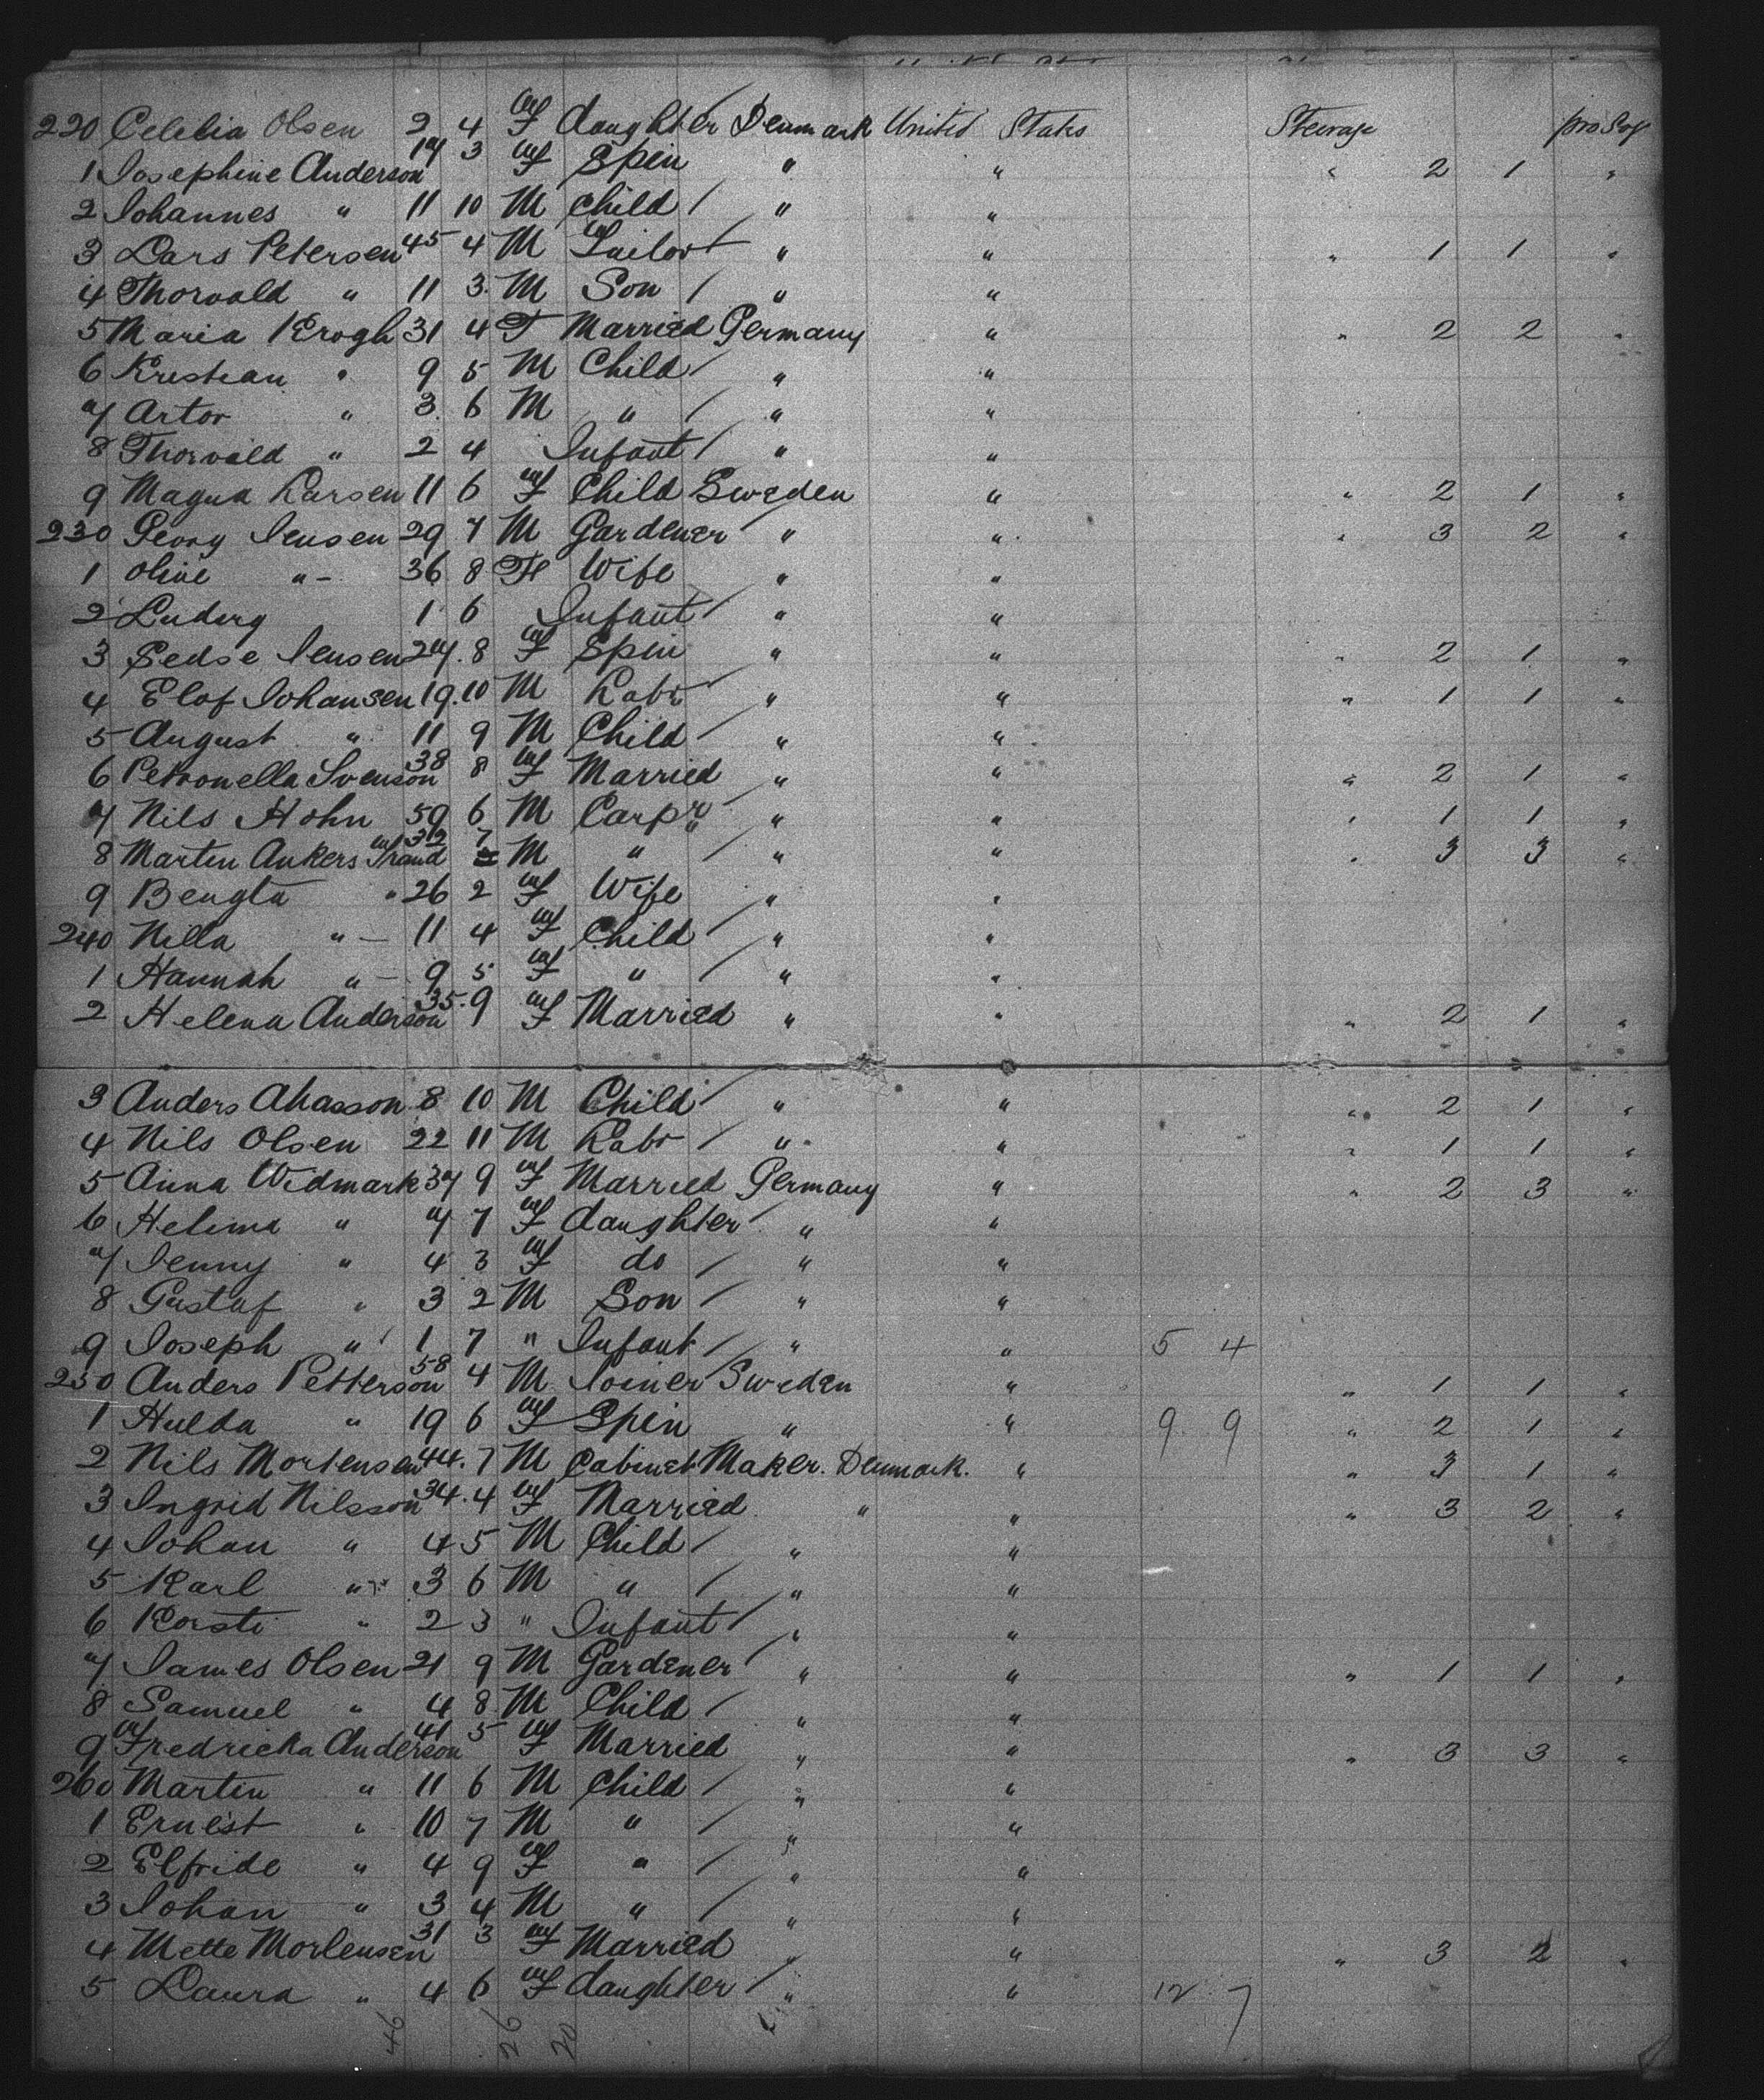 220 Celebia Olsen 2 4 F daughter / Denmark United States Steerage pro Soj
1 Josephine Anderson 17 3 F Spin " " " 2 1 "
2 Johannes " 11 10 M Child / " "
3 Lars Petersen 45 4 M Sailor " " " 1 1 "
4 Thorvald " 11 3 M Son / " "
5 Maria Krogh 31 4 F Married Germany " " 2 2 "
6 Kristian " 9 5 M Child / " "
7 Artor " 3 6 M " / " "
8 Thorvald " 2 4 Infant / " "
9 Magna Larsen 11 6 F Child Sweden " " 2 1 "
230 Georg Jensen 29 7 M Gardener / " " " 3 2 "
1 Oline " - 36 8 F Wife " "
2 Ludvig 1 6 Infant / " "
3 Sedse Jensen 27 8 F Spin " " " 2 1 "
4 Elof Johansen 19 10 M Labr " " " 1 1 "
5 August " 11 9 M Child / " "
6 Petronella Svenson 38 8 F Married " " " 2 1 "
7 Nils Hohn 59 6 M Carpr " " " 1 1 "
8 Martin Ankers Strand 32 7 M " / " " " 3 3 "
9 Bengta " 26 2 F Wife " "
240 Nilla " - 11 4 F Child / " "
1 Hannah " - 9 5 F " / " "
2 Helena Anderson 35 9 F Married " " " 2 1 "
3 Anders 8 10 M Child / " " " 2 1 "
4 Nils Olsen 22 11 M Labr / " " " 1 1 "
5 Anna Widmark 37 9 F Married Germany " " 2 3 "
6 Helima " 7 7 F daughter / " "
7 Jenny " 4 3 F do / " "
8 Gustaf " 3 2 M Son / " "
9 Joseph " 1 7 " Infant / " " 5 4
250 Anders Petterson 58 4 M Joiner / Sweden " " 1 1 "
1 Hulda " 19 6 F Spin " " 9 9 " 2 1 "
2 Nils Mortensen 44 7 M Cabinet Maker. Denmark. " " 3 1 "
3 Ingrid Nilsson 34 4 F Married " " " 3 2 "
4 Johan " 4 5 M Child / " "
5 Karl " 3 6 M " / " "
6 Korsti " 2 3 " Infant / " "
7 James Olsen 21 9 M Gardener / " " " 1 1 "
8 Samuel " 4 8 M Child / " "
9 Fredricka Anderson 41 5 F Married " " " 3 3 "
260 Martin " 11 6 M Child / " "
1 Ernest " 10 7 M " / " "
2 Elfride " 4 9 F " / " "
3 Johan " 3 4 M " / " "
4 Mette Mortensen 31 3 F Married " " " 3 2 "
5 Laura " 4 6 F daughter / " " 12 7
46 26 20